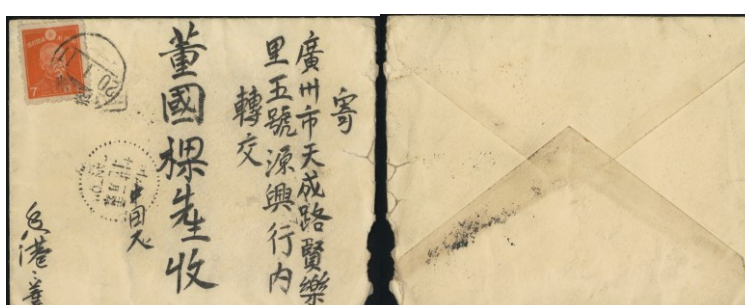 寄
廣州市天成路賢樂
里五號源興行內
轉交
董國棵先生收
香港
7
20